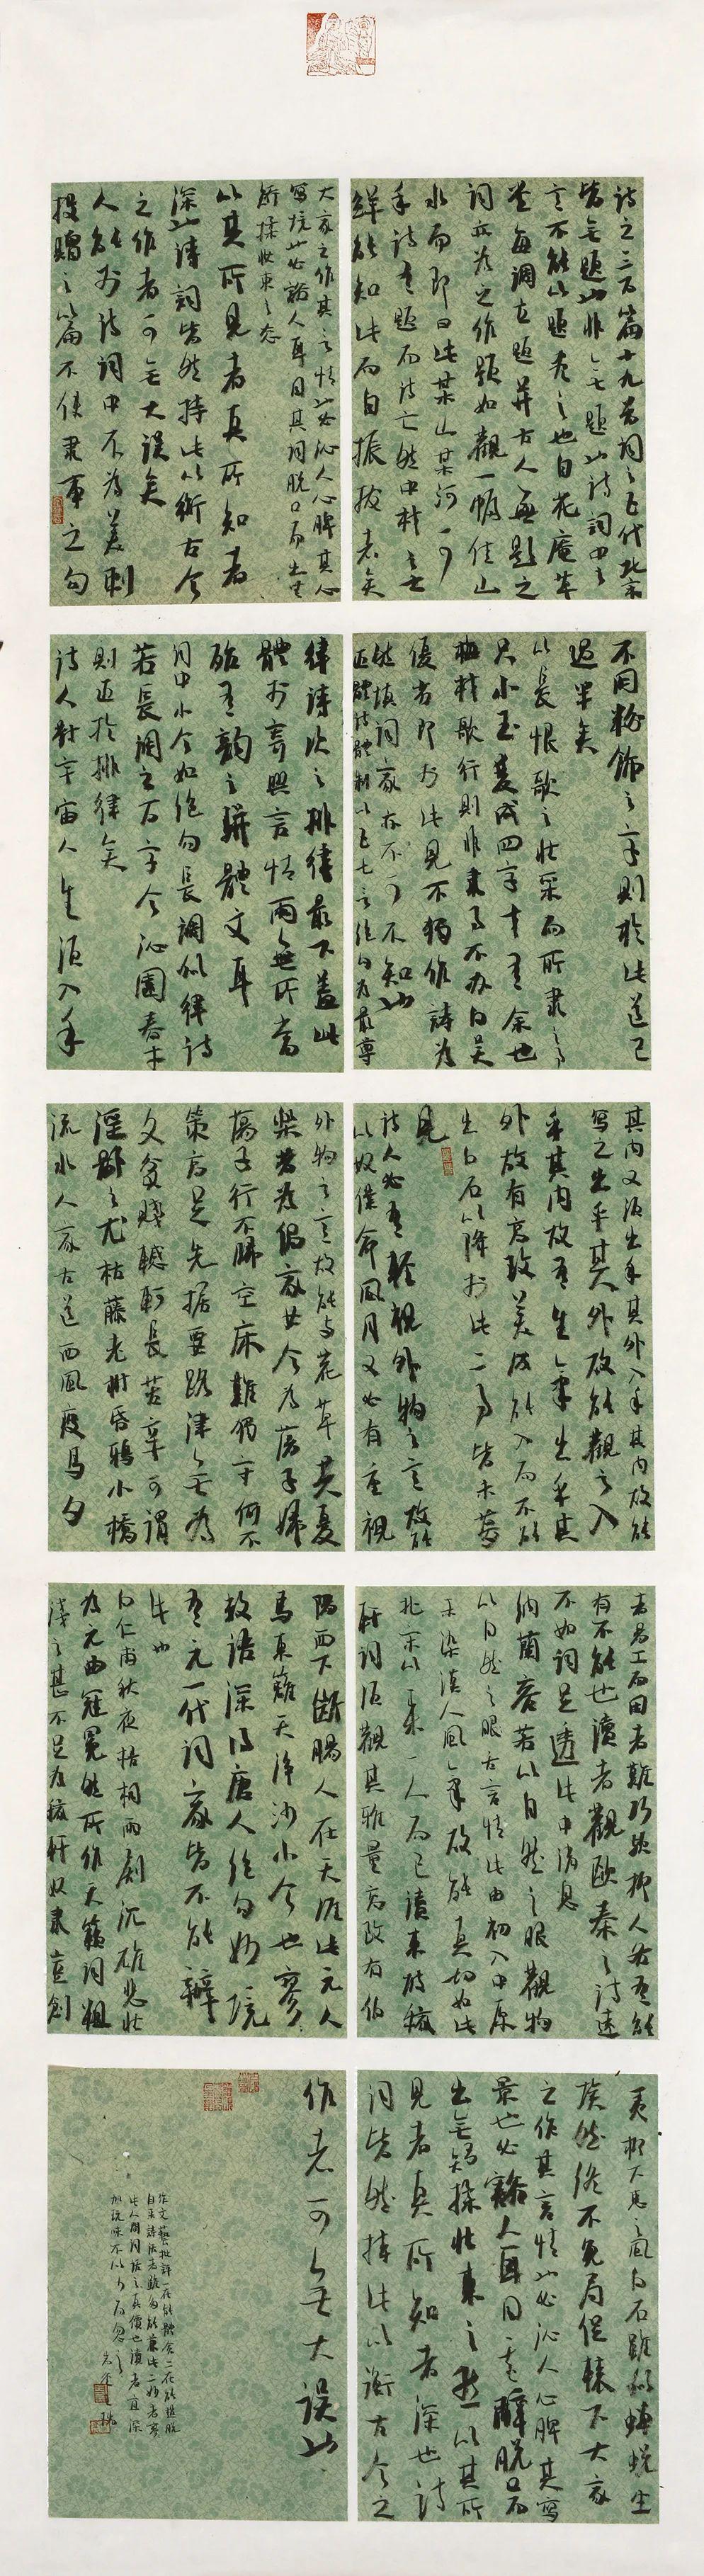 詩之三百篇十九首詞之五代北宋
皆無題也非無題也詩詞中之
意不能以題盡之也自花庵草
堂每調立題并古人無題之
詞亦為之作題如觀一幅佳山
水而即曰此某山某河可
乎詩有題而詩亡然中材之士
鮮能知此而自振拔者矣
大家之作其言情也必沁人心脾其
寫境也必豁人耳目其詞脫口而出無
矯揉妝束之态
以其所見者真所知者
深也詩詞皆然持此以衡古今
之作者可無大誤矣
人能於詩詞中不為美刺
投贈之篇不使隸事之句
不用粉飾之字則於此道已
過半矣
以長恨歌之壯采而所隸之事
只小玉雙成四字才有余也
梅村歌行則非隸事不办白吳
優劣即於此見不獨作詩為
然填詞家亦不可不知也
近體詩體制以五七言絕句為最尊
律詩次之排律最下蓋此
體於寄興言情兩無所當
殆有韵之駢體文耳
詞中小令如絕句長調似律詩
若長調之百字令沁園春等
則近於排律矣
詩人對宇宙人生須入乎
其內又須出乎其外入乎其內故能
寫之出乎其外故能觀之入
乎其內故有生氣出乎其
外故有高致美成能入而不能
出白石以降於此二事皆未夢
見
詩人必有輕視外物之意故能
以奴僕命風月又必有重視
外物之意故能與花草共憂
樂昔為倡家女今為蕩子婦
蕩子行不歸空床難獨守何不
策高足先據要路津無為
久貧賤轗軻長苦辛可謂
淫鄙之尤枯藤老樹昏鴉小橋
流水人家古道西風瘦馬夕
陽西下斷腸人在天涯此元人
馬東籬天淨沙小令也寥
數語深得唐人絕句妙境
有元一代詞家皆不能辦
此也
白仁甫秋夜梧桐雨劇沉雄悲壯
為元曲冠冕然所作天籟詞粗
淺之甚不足為稼軒奴隸豈創
者易工而因者難巧歟抑人各有能
有不能也讀者觀歐秦之詩遠
不如詞足透此中消息
納蘭容若以自然之眼觀物
以自然之舌言情此由初入中原
未染漢人風氣故能真切如此
北宋以來一人而已讀東坡稼
軒詞須觀其雅量高致有伯
夷柳下惠之風白石雖似蟬蛻塵
埃然終不免局促轅下大家
之作其言情也必沁人心脾其寫
景也必豁人耳目其辭脫口而
出無矯揉妝束之態以其所
見者真所知者深也詩
詞皆然持此以衡古今之
作者可無大誤也
作文藝批評一在能體會二在能超脫
自來詩話者雖多能兼此二妙者寥
此人間詞話之真價也讀者宜深
加玩味不以少而忽之